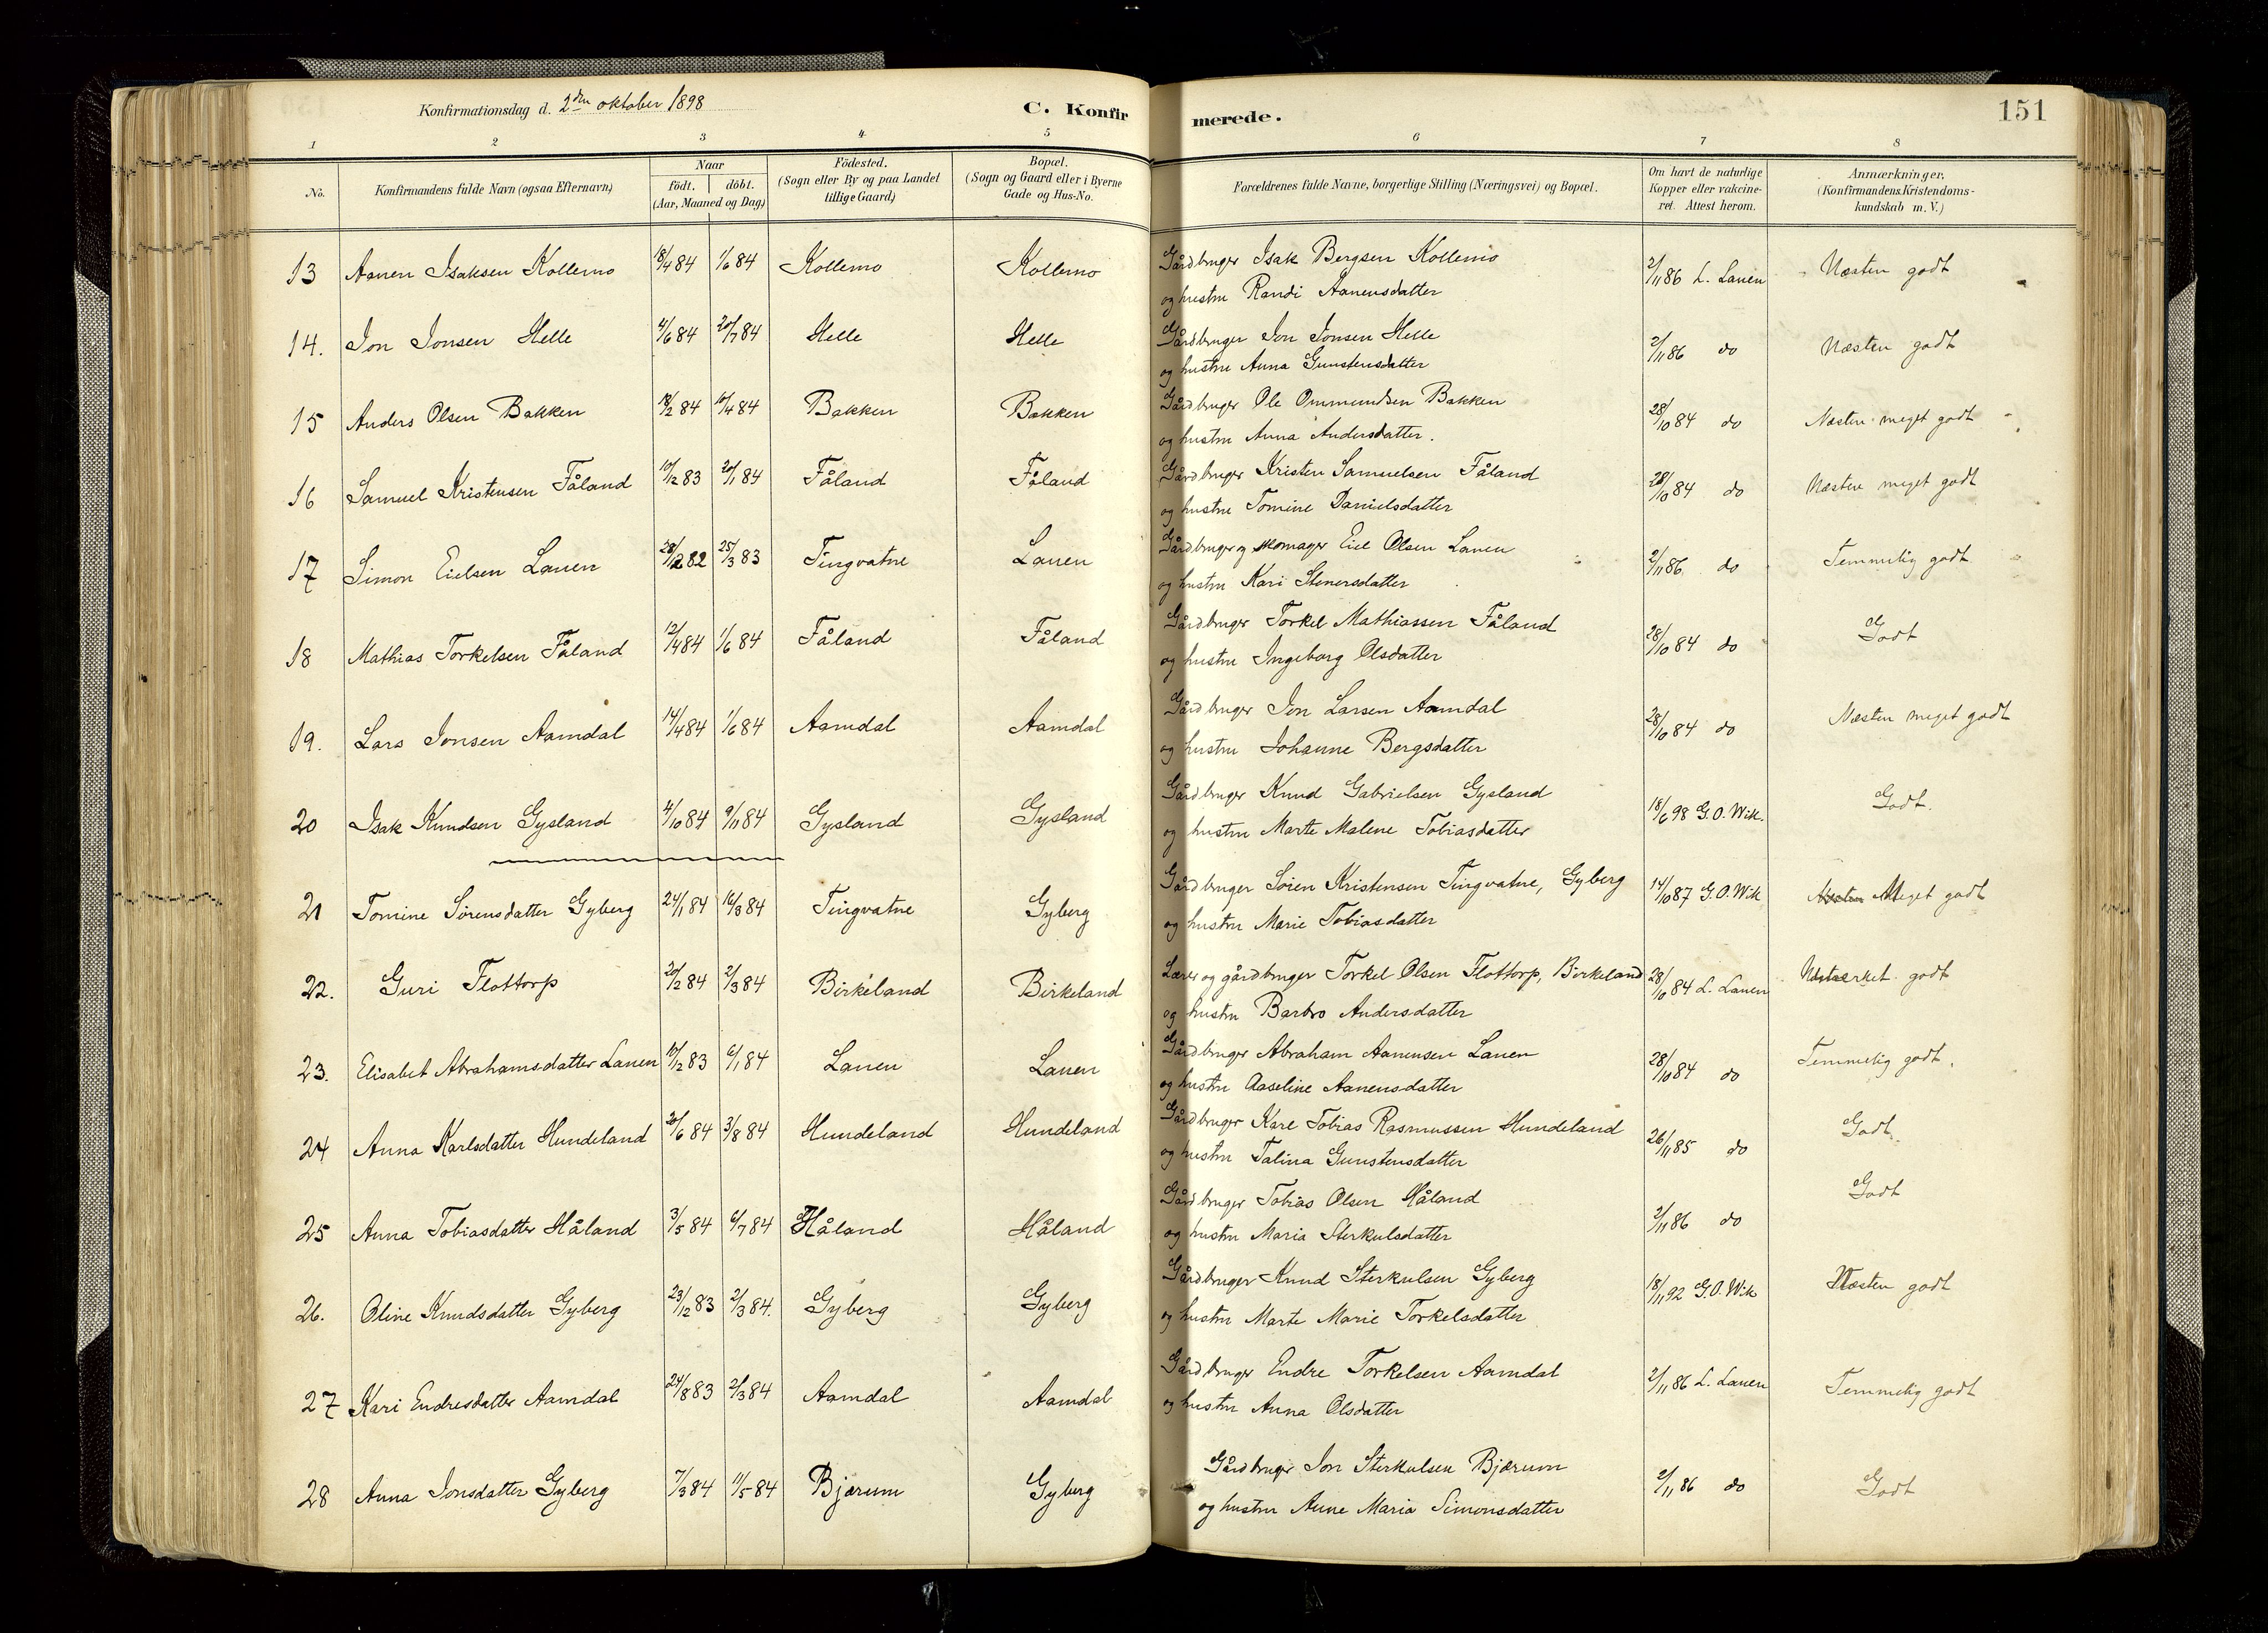 Konfirmationsdag d. 2den oktober 1898
C. Konfirmerede.
151
1 2 3 4 5 6 7 8
No.
Konfirmandens fulde Navn (ogsaa Efternavn)
Naar
födt. döbt.
(Aar, Maaned og Dag)
Födested.
(Sogn eller By og paa Landet
tillige Gaard)
Bopæl.
(Sogn og Gaard eller i Byerne
Gade og Hus-No.
Forældrenes fulde Navne, borgerlige Stilling (Næringsvei) og Bopæl.
Om havt de naturlige
Kopper eller vakcine-
ret. Attest herom.
Anmærkninger.
(Konfirmandens Kristendoms-
kundskab m. V.)
13 Aanen Isaksen Kollemo 18/4 84 1/6 84 Kollemo Kollemo Gårdbruger Isak Bergsen Kollemo 2/11 86 L. Lauen Næsten godt
og hustru Randi Aanensdatter
14. Jon Jonsen Helle 4/6 84 20/7 84 Helle Helle Gårdbruger Jon Jonsen Helle 2/11 86 do Næsten godt
og hustru Anna Gunstensdatter
15 Anders Olsen Bakken 18/2 84 10/4 84 Bakken Bakken Gårdbruger Ole Ommundsen Bakken 28/10 84 do Næsten meget godt
og hustru Anna Andersdatter.
16 Samuel Kristensen Fåland 10/12 83 20/1 84 Fåland Fåland Gårdbruger Kristen Samuelsen Fåland 28/10 84 do Næsten meget godt
og hustru Tomine Danielsdatter
17 Simon Eielsen Lauen 28/12 82 25/3 83 Tingvatne Lauen Gårdbruger og skomager Eiel Olsen Lauen 2/11 86 do Temmelig godt
og hustru Kari Stenersdatter
18 Mathias Torkelsen Fåland 12/4 84 1/6 84 Fåland Fåland Gårdbruger Torkel Mathiassen Fåland 28/10 84 do Godt
og hustru Ingeborg Olsdatter
19. Lars Jonsen Aamdal 14/4 84 1/6 84 Aamdal Aamdal Gårdbruger Jon Larsen Aamdal 28/10 84 do Næsten meget godt
og hustru Johanne Bergsdatter
20 Isak Knudsen Gysland 4/10 84 9/11 84 Gysland Gysland Gårdbruger Knud Gabrielsen Gysland 18/6 98 G.O. Wik. Godt.
og hustru Marte Malene Tobiasdatter
21 Tomine Sörensdatter Gyberg 24/1 84 16/3 84 Tingvatne Gyberg Gårdbruger Sören Kristensen Tingvatne, Gyberg 14/10 87 G.O. Wik Meget godt
og hustru Marie Tobiasdatter
22. Guri Flottorp 20/2 84 2/3 84 Birkeland Birkeland Lærer og gårdbruger Torkel Olsen Flottorp, Birkeland 28/10 84 L. Lauen Udmærket godt
og hustru Barbro Andersdatter
23. Elisabet Abrahamsdatter Lauen 10/12 83 6/1 84 Lauen Lauen Gårdbruger Abraham Aanensen Lauen 28/10 84 do Temmelig godt.
og hustru Aaseline Aanensdatter
24 Anna Karlsdatter Hundeland 20/6 84 3/8 84 Hundeland Hundeland Gårdbruger Karl Tobias Rasmussen Hundeland 26/11 85 do Godt.
og hustru Talina Gunstensdatter
25 Anna Tobiasdatter Håland 3/5 84 6/7 84 Håland Håland Gårdbruger Tobias Olsen Håland 2/11 86 do Godt
og hustru Maria Sterkulsdatter
26. Oline Knudsdatter Gyberg 23/12 83 2/3 84. Gyberg Gyberg Gårdbruger Knud Sterkulsen Gyberg 18/11 92 G.O. Wik Næsten godt
og hustru Marte Marie Torkelsdatter
27 Kari Endresdatter Aamdal 24/8 83 2/3 84 Aamdal Aamdal Gårdbruger Endre Torkelsen Aamdal 2/11 86 L. Lauen Temmelig godt
og hustru Anna Olsdatter
28 Anna Jonsdatter Gyberg 7/3 84 11/5 84 Bjærum Gyberg Gårdbruger Jon Sterkulsen Bjærum 2/11 86 do Godt
og hustru Anne Maria Simonsdatter